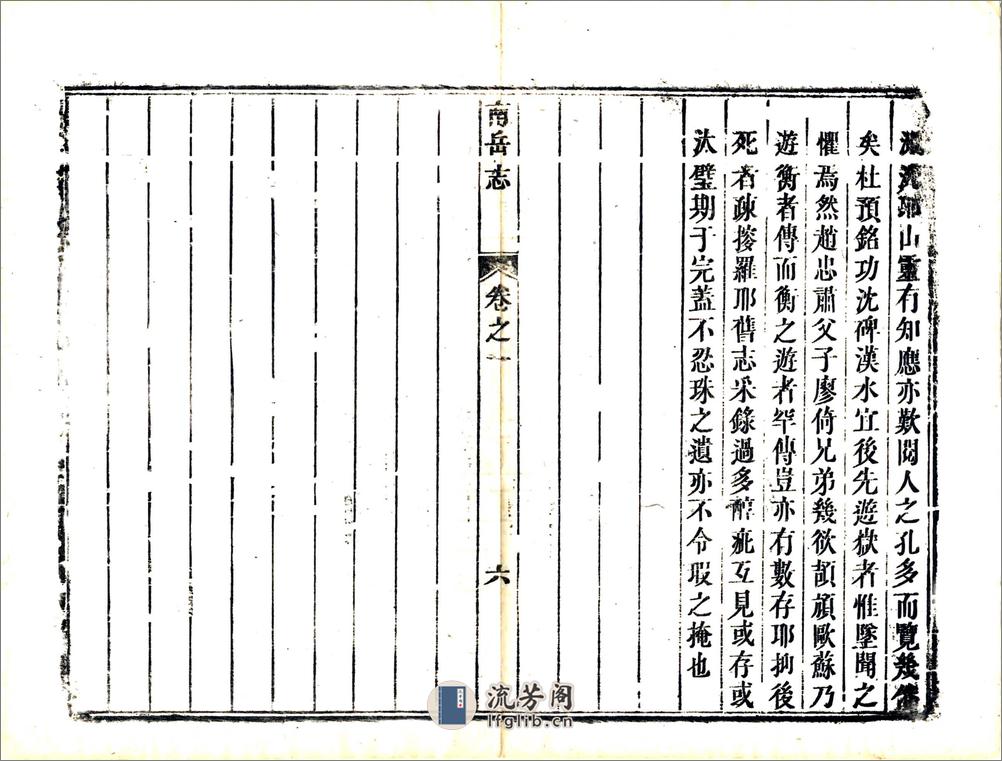 山靈有知應亦歎閱人之孔多而覽幾
矣杜預銘功沈碑漢水宜後先遊嶽者惟墜聞之
懼焉然趙忠肅父子廖倚兄弟幾欲頡頏歐蘇乃
遊衡者傳而衡之遊者罕傳豈亦有數存耶抑後
死者疎搜羅耶舊志采錄過多醇疵互見或存或
汰璧期于完蓋不忍珠之遺亦不令瑕之掩也
南岳志
卷之一
六
流芳阁
lfglib.cn